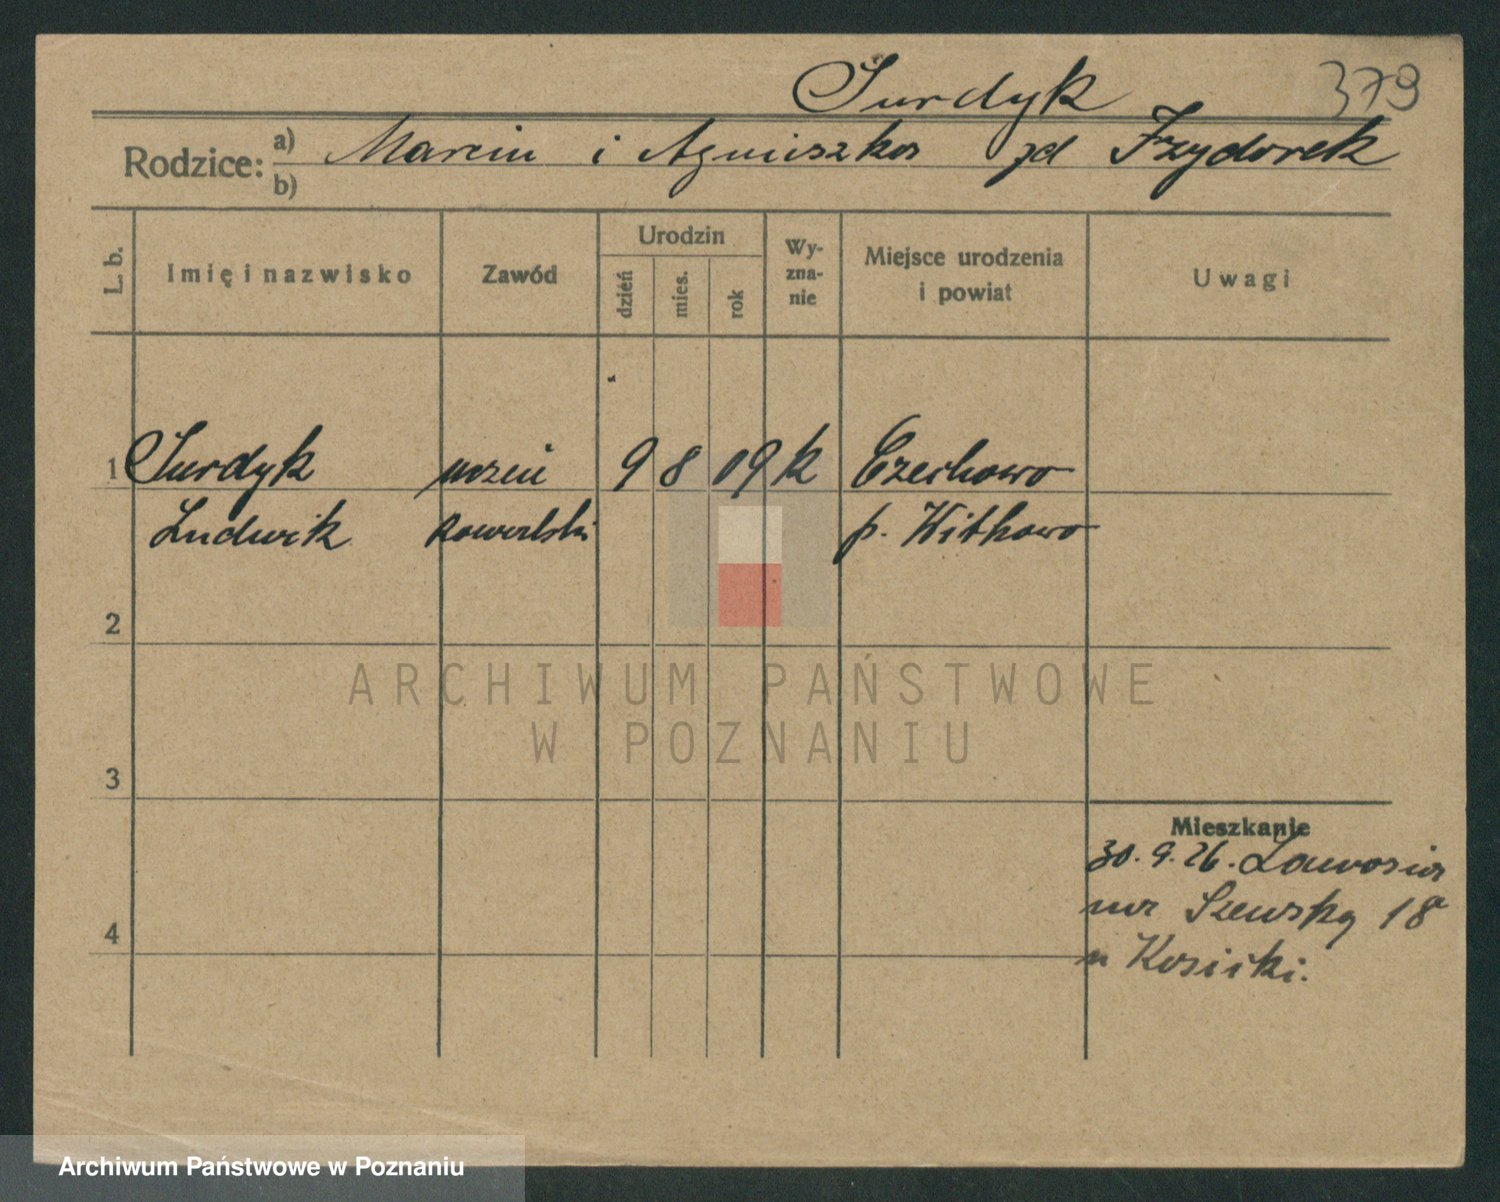 Surdyk 379
Rodzice: a) Marcin i Agnieszka zd Izydorek
b)
L. b. Imię i nazwisko Zawód Urodzin dzień mies. rok Wy-zna-nie Miejsce urodzenia i powiat Uwagi
1 Surdyk uczeń 9 8 09 k Czechowo
Ludwik kowalski p. Witkowo
2
3
4
Mieszkanie
30. 9. 26.
na Szewska 18
u Kosicki.
ARCHIWUM PAŃSTWOWE
W POZNANIU
Archiwum Państwowe w Poznaniu